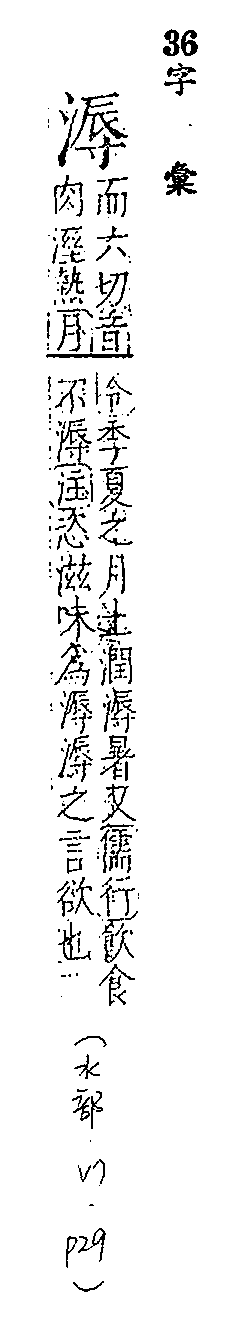 36字 彙
溽
而六切音
肉溼熱月
令季夏之月土潤溽暑又儒行飲食
不溽注恣滋味為溽溽之言欲也…
(水部. . p29)